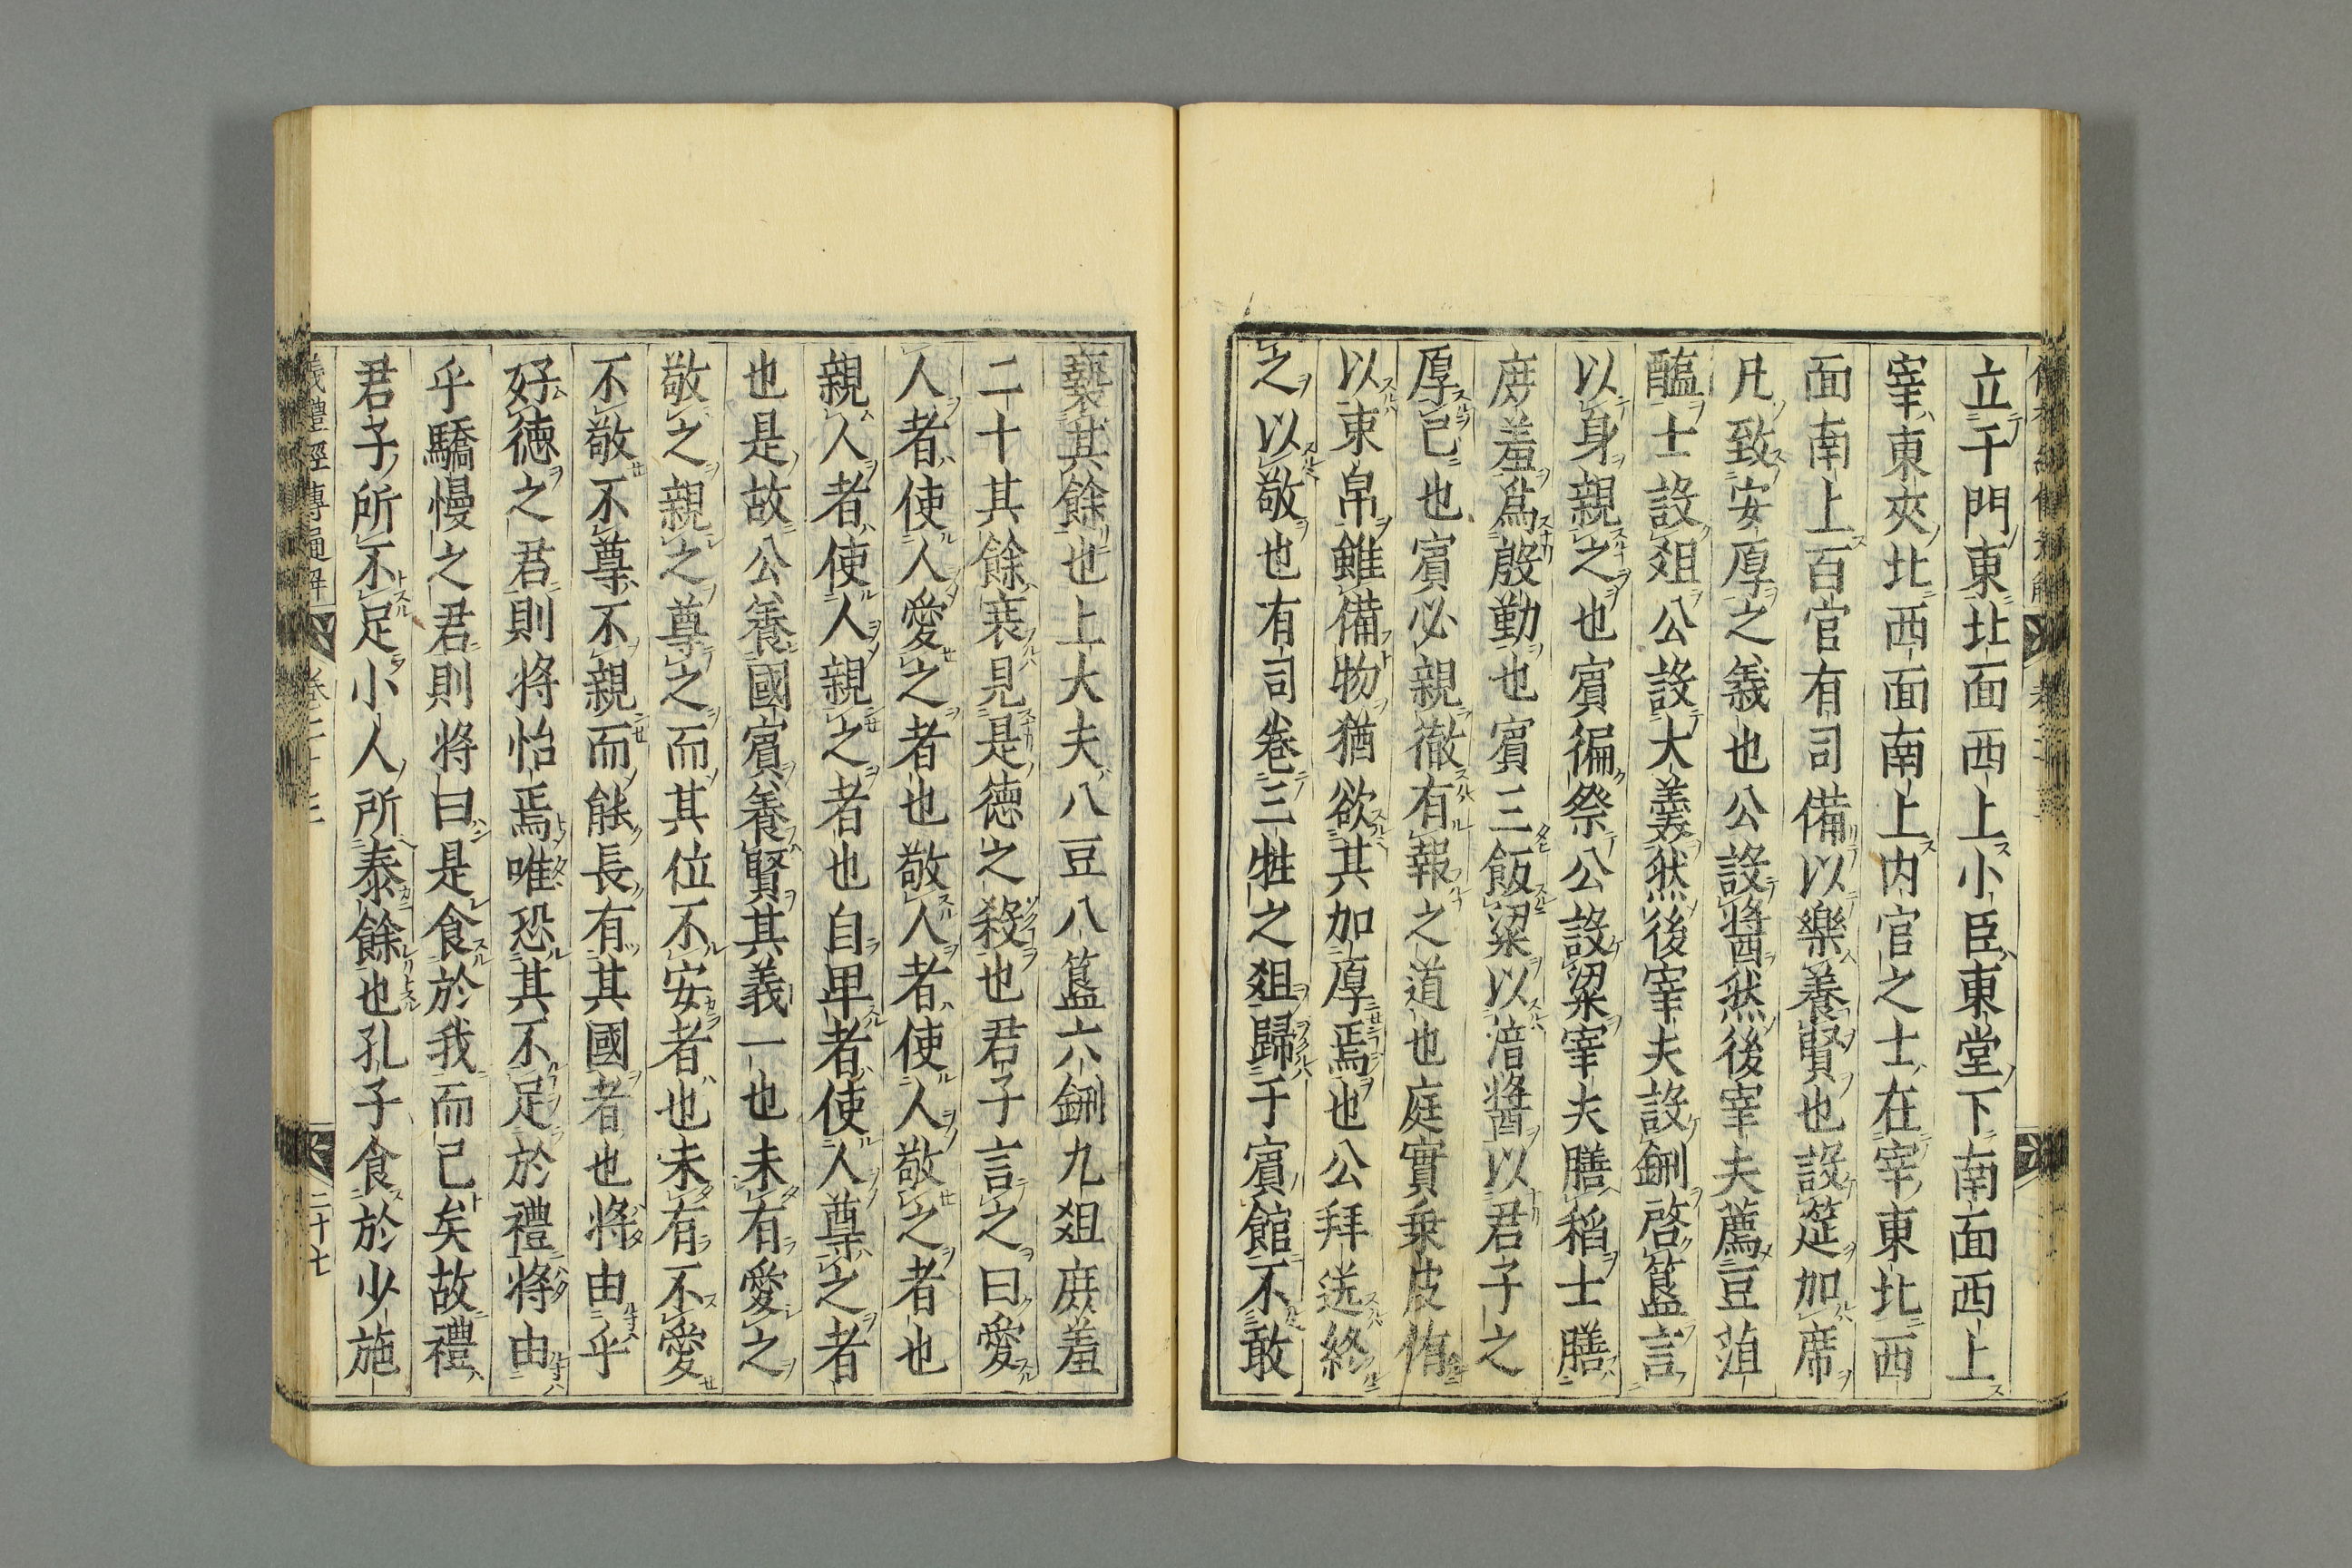 立于門東北面西上小臣東堂下南面西上
宰東夾北西面南上内官之士在宰東北西
面南上百官有司備以樂養賢也設筵加席
凡致安厚之義也公設醬然後宰夫薦豆菹
醢士設俎公設大羹然後宰夫設鉶啓簋言
以身親之也賓徧祭公設粱宰夫膳稻士膳
庶羞爲殷勤也賓三飯粱以湆醬以君子之
厚己也賓必親徹有報之道也庭實乘皮侑
以束帛雖備物猶欲其加厚焉也公拜送終
之以敬也有司卷三牲之俎歸于賓館不敢
褻其餘也上大夫八豆八簋六鉶九俎庶羞
二十其餘衰見是德之殺也君子言之曰愛
人者使人愛之者也敬人者使人敬之者也
親人者使人親之者也自卑者使人尊之者
也是故公養國賓養賢其義一也未有愛之
敬之親之尊之而其位不安者也未有不愛
不敬不尊不親而能長有其國者也將由乎
好德之君則将怡焉唯恐其不足於禮將由
乎驕慢之君則将曰是食於我而已矣故禮
君子所不足小人所泰餘也孔子食於少施
儀禮經傳通解 卷二十三 二十七